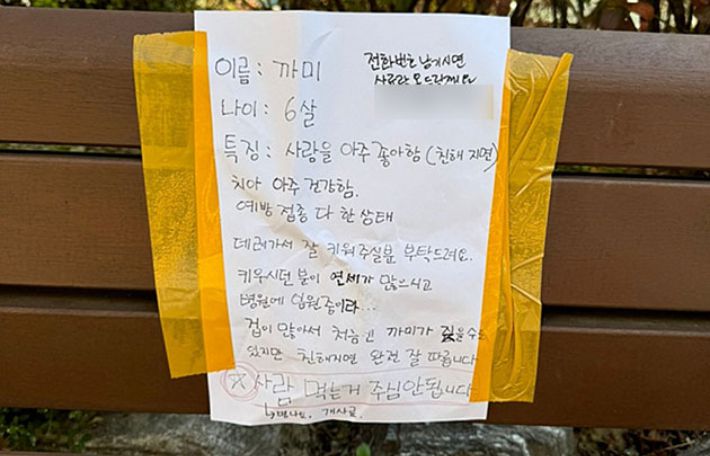 이름: 까미
전화번호 남기시면
사료랑 모드릴께요
나이: 6살
특징: 사람을 아주 좋아함 (친해 지면)
치아 아주 건강함.
예방 접종 다 한 상태
데려가서 잘 키워주실분 부탁드려요.
키우시던 분이 연세가 많으시고
병원에 입원 중이라...
겁이 많아서 처음엔 까미가 짖을수도
있지만 친해지면 완전 잘 따릅니다
☆사람 먹는거 주심안됩니다
개사료